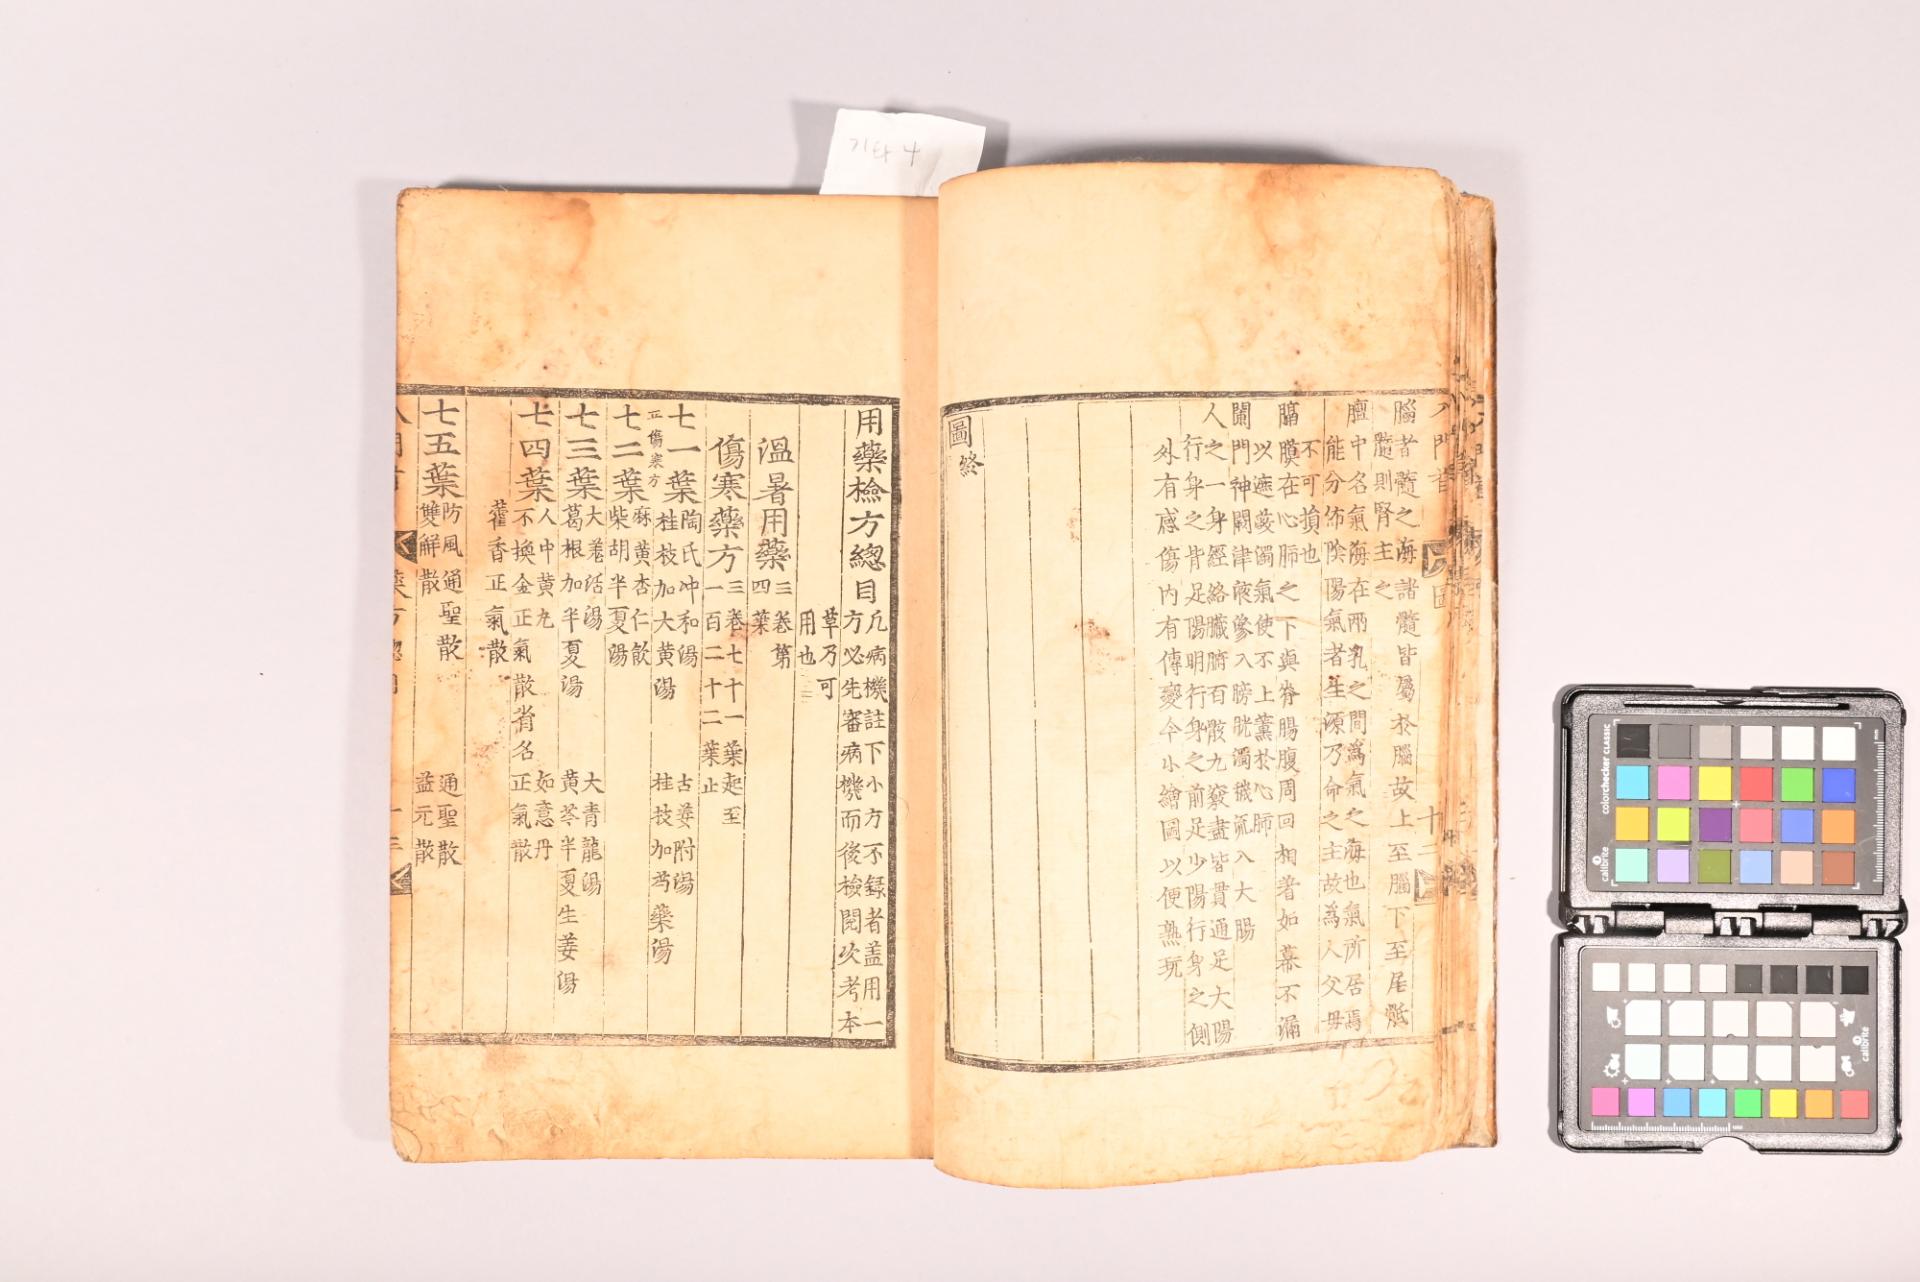 기타 4
腦者髓之海諸髓皆屬於腦故上至腦下至尾骶
髓則腎主之
膻中名氣海在兩乳之間爲氣之海也氣所居焉
能分佈陰陽氣者生源乃命之主故為人父母
不可損也
膈膜在心肺之下與脊腸腹周回相著如幕不漏
以遮蔽濁氣使不上薰於心肺
闌門神闕津液滲入膀胱濁穢流入大腸
人之一身經絡臟腑百骸九竅盡皆貫通足大陽
行身之背足陽明行身之前足少陽行身之側
外有感傷內有傳變今小繪圖以便熟玩
圖終
用藥檢方總目
凡病機註下小方不録者盖用一
方必先審病機而後檢閱次考本
草乃可
用也
溫暑用藥
三卷第
四葉
傷寒藥方
三卷七十一葉起至
一百二十二葉止
正傷寒方
七一葉
陶氏冲和湯 古姜附湯
桂枝加大黄湯 桂技加芍藥湯
七二葉
麻黄杏仁飮
柴胡半夏湯
七三葉
大羗活湯 大青龍湯
葛根加半夏湯 黄芩半夏生姜湯
七四葉
人中黄丸 如意丹
不換金正氣散省名正氣散
藿香正氣散
七五葉
防風通聖散 通聖散
雙解散 益元散
colorchecker CLASSIC
calibrite
calibrite